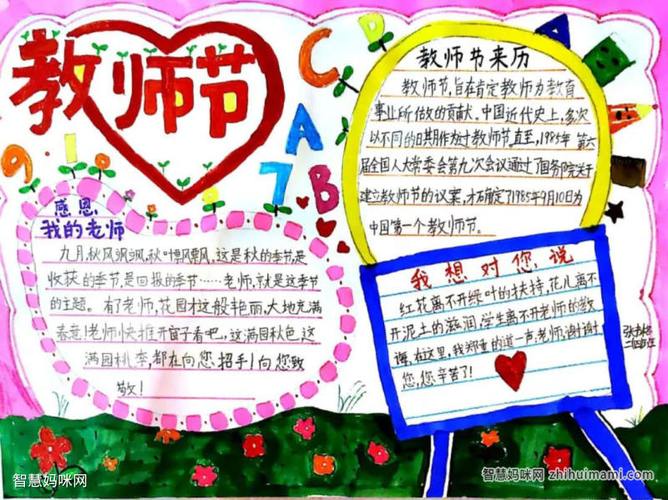 教师节
教师节来历
教师节,旨在肯定教师为教育
事业所做的贡献。中国近代史上,多次
以不同的日期作为过教师节。直至,1985年 第六
届全国人大常委会第九次会议通过了国务院关于
建立教师节的议案,才确定了1985年9月10日为
中国第一个教师节。
C D A
A
B
9 10 7
感恩
我的老师
九月,秋风飒飒,秋叶飘飘,这是秋的季节,是
收获的季节,是回报的季节……老师,就是这季节
的主题。有了老师,花园才这般艳丽,大地充满
春意!老师快推开窗子看吧,这满园秋色,这
满园桃李,都在向您招手!向您致
敬!
我想对您说
红花离不开绿叶的扶持,花儿离不
开泥土的滋润,学生离不开老师的教
诲,在这里,我郑重的道一声:老师,谢谢
您,您辛苦了!
智慧妈咪网
智慧妈咪网 zhihuimami.com